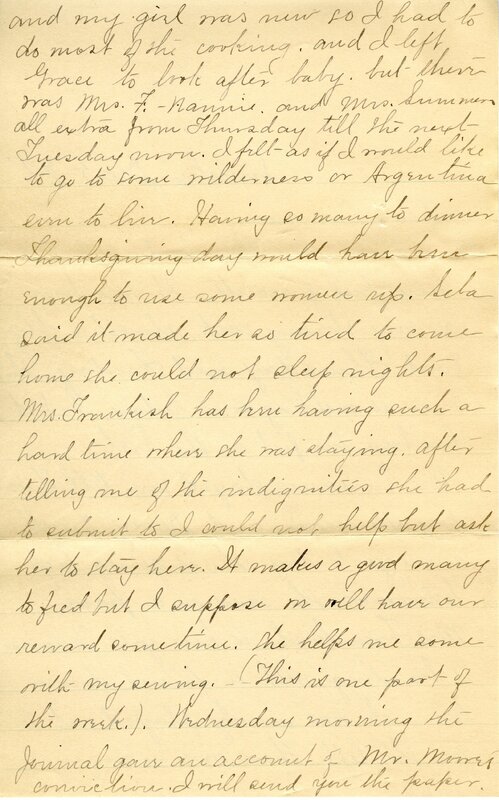 and my girl was new so I had to
do most of the cooking. and I left
Grace to look after baby. but there
was Mrs. F. - Nannie. and Mrs. Sumner
all extra from Thursday till the next
Tuesday noon. I felt as if I would like
to go to some wilderness or Argentina
even to live. Having so many to dinner
Thanksgiving day would have been
enough to use some women up. Seba
said it made her so tired to come
home she could not sleep nights.
Mrs. Frankish has been having such a
hard time where she was staying. after
telling me of the indignities she had
to submit to I could not help but ask
her to stay here. It makes a good many
to feed but I suppose we will have our
reward sometime. She helps me some
with my sewing. - (This is one part of
the week.). Wednesday morning the
Journal gave an account of Mr. Moore's
conviction. I will send you the paper.